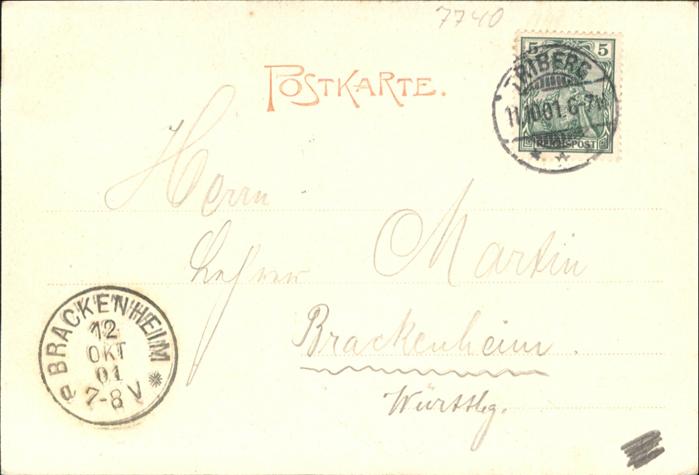 7740
5 5
TRIBERG
11.10.01. 6-7N
REICHSPOST
POSTKARTE.
Herrn
Lehrer Martin
Brackenheim.
Württbg.
BRACKENHEIM
12
OKT
01
7-8V
a